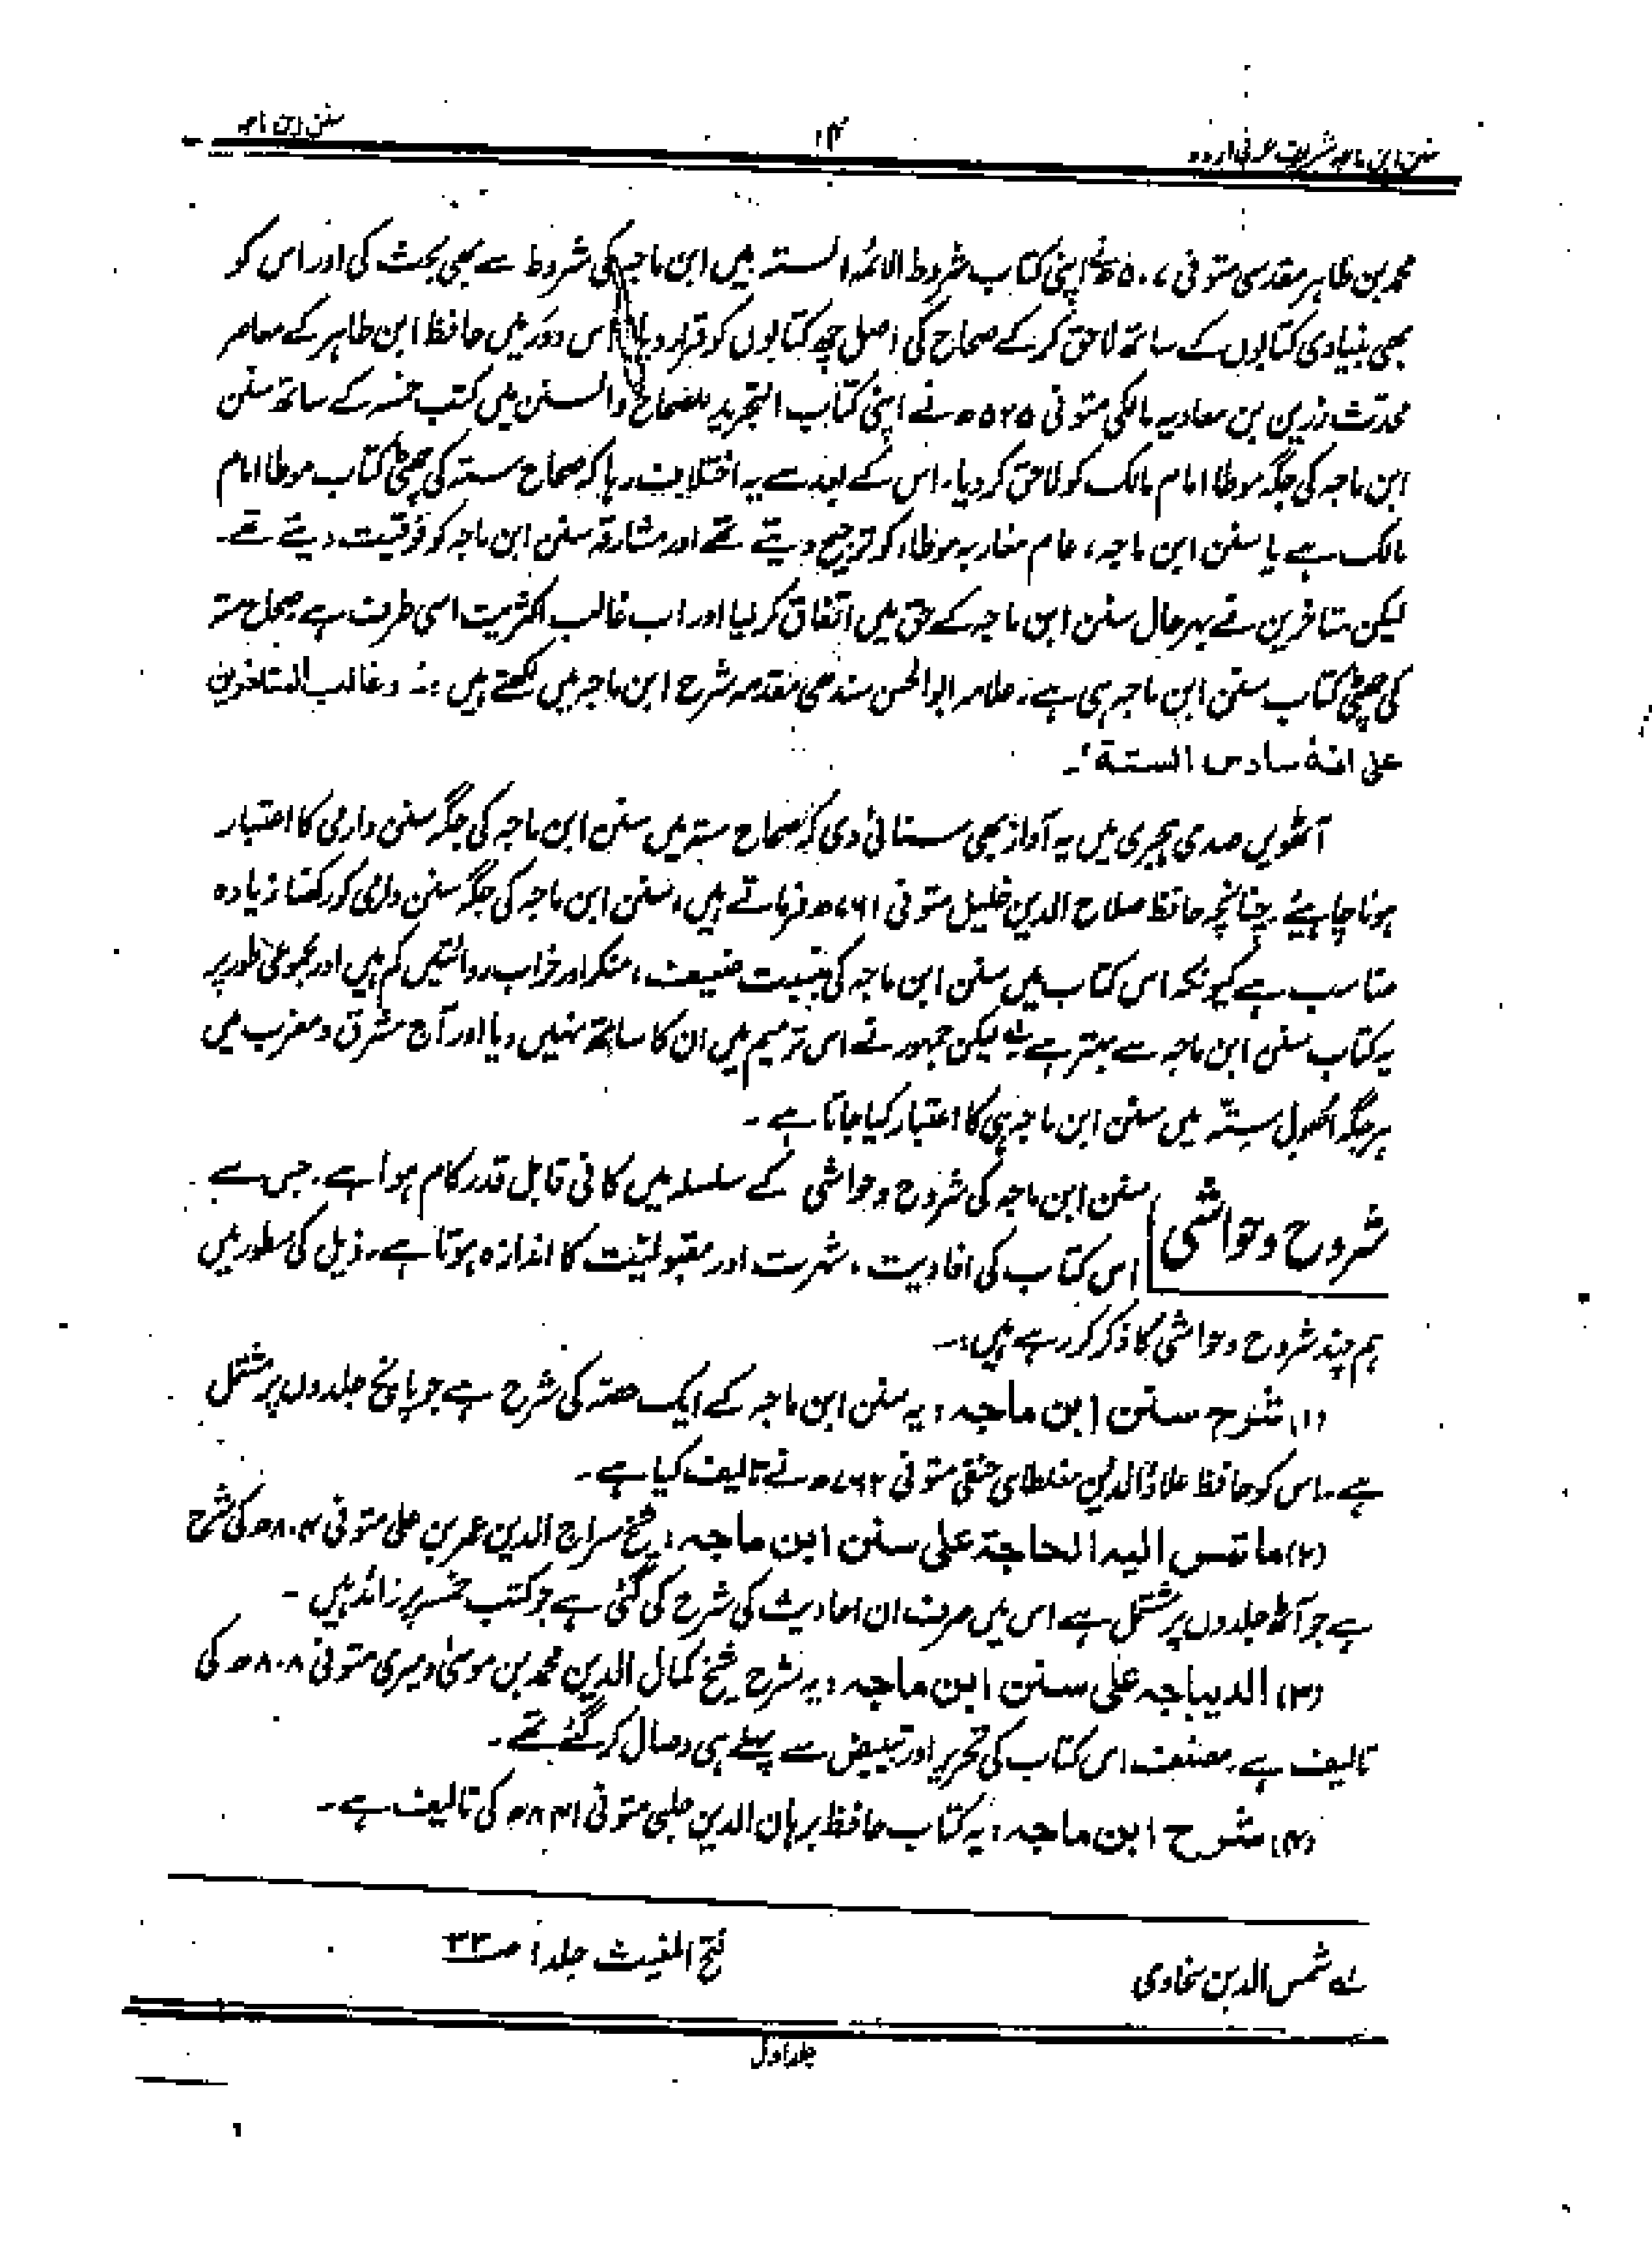 سنن ابن ماجہ شریف عربی اردو
۱۴
سنن ابن ماجہ
محمد بن طاہر مقدسی متوفی ۵۰۷ھ نے اپنی کتاب شروط الائمہ الستہ میں ابن ماجہ کی شروط سے بھی بحث کی اور اس کو
بھی بنیادی کتابوں کے ساتھ لاحق کر کے صحاح کی اصل چھ کتابوں کو قرار دیا اس دور میں حافظ ابن طاہر کے معاصر
محدث رزین بن معاویہ مالکی متوفی ۵۲۵ھ نے اپنی کتاب التجرید للصحاح والسنن میں کتب خمسہ کے ساتھ سنن
ابن ماجہ کی جگہ موطا امام مالک کو لاحق کر دیا۔ اس کے بعد سے یہ اختلاف رہا کہ صحاح ستہ کی چھٹی کتاب موطا امام
مالک ہے یا سنن ابن ماجہ، عام مغاربہ موطاء کو ترجیح دیتے تھے اور مشارقہ سنن ابن ماجہ کو فوقیت دیتے تھے۔
لیکن متاخرین نے بہرحال سنن ابن ماجہ کے حق میں اتفاق کر لیا اور اب غالب اکثریت اسی طرف ہے صحاح ستہ
کی چھٹی کتاب سنن ابن ماجہ ہی ہے۔ علامہ ابوالحسن سندھی مقدمہ شرح ابن ماجہ میں لکھتے ہیں :۔ وغالب المتاخرین
علی انہ سادس الستة'۔
آٹھویں صدی ہجری میں یہ آواز بھی سنائی دی کہ صحاح ستہ میں سنن ابن ماجہ کی جگہ سنن دارمی کا اعتبار
ہونا چاہیئے چنانچہ حافظ صلاح الدین خلیل متوفی ۷۶۱ھ فرماتے ہیں، سنن ابن ماجہ کی جگہ سنن دارمی کو رکھنا زیادہ
مناسب ہے کیونکہ اس کتاب میں سنن ابن ماجہ کی بنسبت ضعیف، منکر اور خراب روائتیں کم ہیں اور مجموعی طور پر
یہ کتاب سنن ابن ماجہ سے بہتر ہے لیکن جمہور نے اس ترمیم میں ان کا ساتھ نہیں دیا اور آج مشرق و مغرب میں
ہر جگہ اصول ستہ میں سنن ابن ماجہ ہی کا اعتبار کیا جاتا ہے۔
شروح و حواشی
سنن ابن ماجہ کی شروح و حواشی کے سلسلہ میں کافی قابل قدر کام ہوا ہے۔ جس سے
اس کتاب کی افادیت، شہرت اور مقبولیت کا اندازہ ہوتا ہے۔ ذیل کی سطور میں
ہم چند شروح و حواشی کا ذکر کر رہے ہیں :۔
(۱) شرح سنن ابن ماجہ : یہ سنن ابن ماجہ کے ایک حصّہ کی شرح ہے جو پانچ جلدوں پر مشتمل
ہے۔ اس کو حافظ علاؤالدین مغلطای حنفی متوفی ۷۶۲ھ نے تالیف کیا ہے۔
(۲) ما تمس الیہ الحاجة علی سنن ابن ماجہ : شیخ سراج الدین عمر بن علی متوفی ۸۰۴ھ کی شرح
ہے جو آٹھ جلدوں پر مشتمل ہے اس میں صرف ان احادیث کی شرح کی گئی ہے جو کتب خمسہ پر زائد ہیں۔
(۳) الدیباجہ علی سنن ابن ماجہ : یہ شرح شیخ کمال الدین محمد بن موسیٰ دمیری متوفی ۸۰۸ھ کی
تالیف ہے۔ مصنف اس کتاب کی تحریر اور تبییض سے پہلے ہی وصال کر گئے تھے۔
(۴) شرح ابن ماجہ : یہ کتاب حافظ برہان الدین حلبی متوفی ۸۴۱ھ کی تالیف ہے۔
لہ شمس الدین سخاوی
فتح المغیث جلد ۱ صـ ۳۳
جلد اول